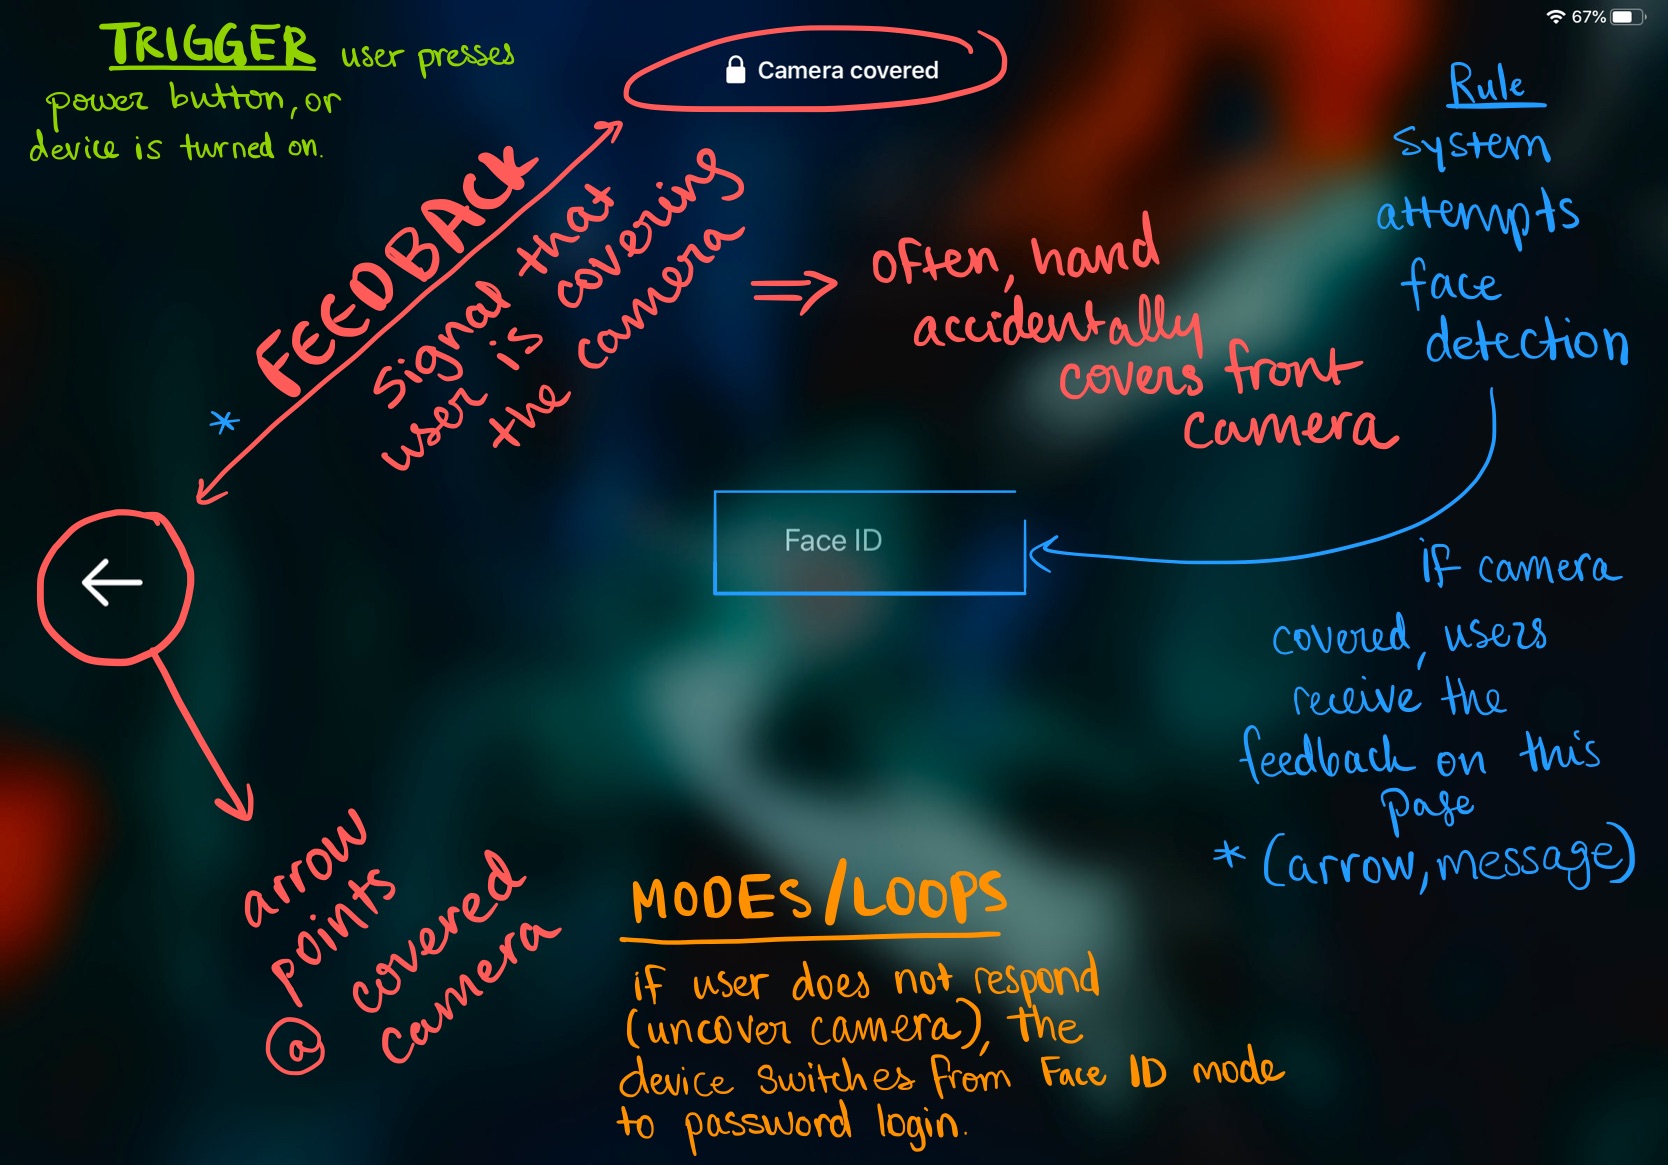 67%
TRIGGER user presses
power button, or
device is turned on.
Camera covered
FEEDBACK
Signal that
user is covering
the camera
⇒ often, hand
accidentally
covers front
camera
Rule
System
attempts
face
detection
*
←
Face ID
if camera
covered, users
receive the
feedback on this
page
* (arrow, message)
arrow
points
@ covered
camera
MODES/LOOPS
if user does not respond
(uncover camera), the
device switches from Face ID mode
to password login.